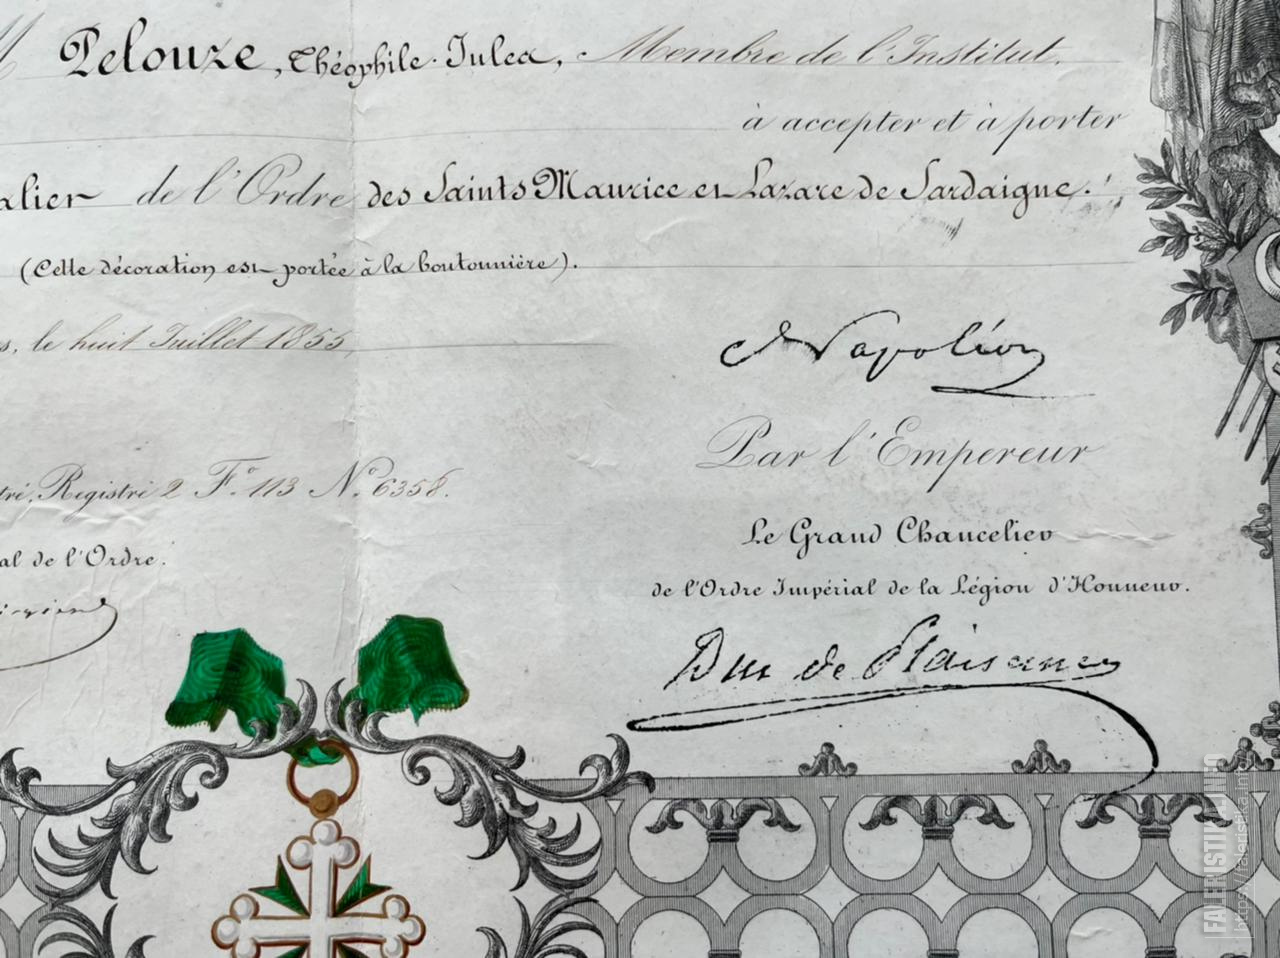 M Pelouze, Théophile-Jules, Membre de l'Institut.
à accepter et à porter
alier de l'Ordre des Saints Maurice et Lazare de Sardaigne.
(Cette décoration est portée à la boutonnière).
s, le huit Juillet 1855,
Napoléon
Par l'Empereur
tré, Registre 2 F° 113 N° 6358.
Le Grand Chancelier
al de l'Ordre.
de l'Ordre Impérial de la Légion d'Honneur.
Duc de Plaisance
FALERISTIKA.INFO
https://faleristika.info